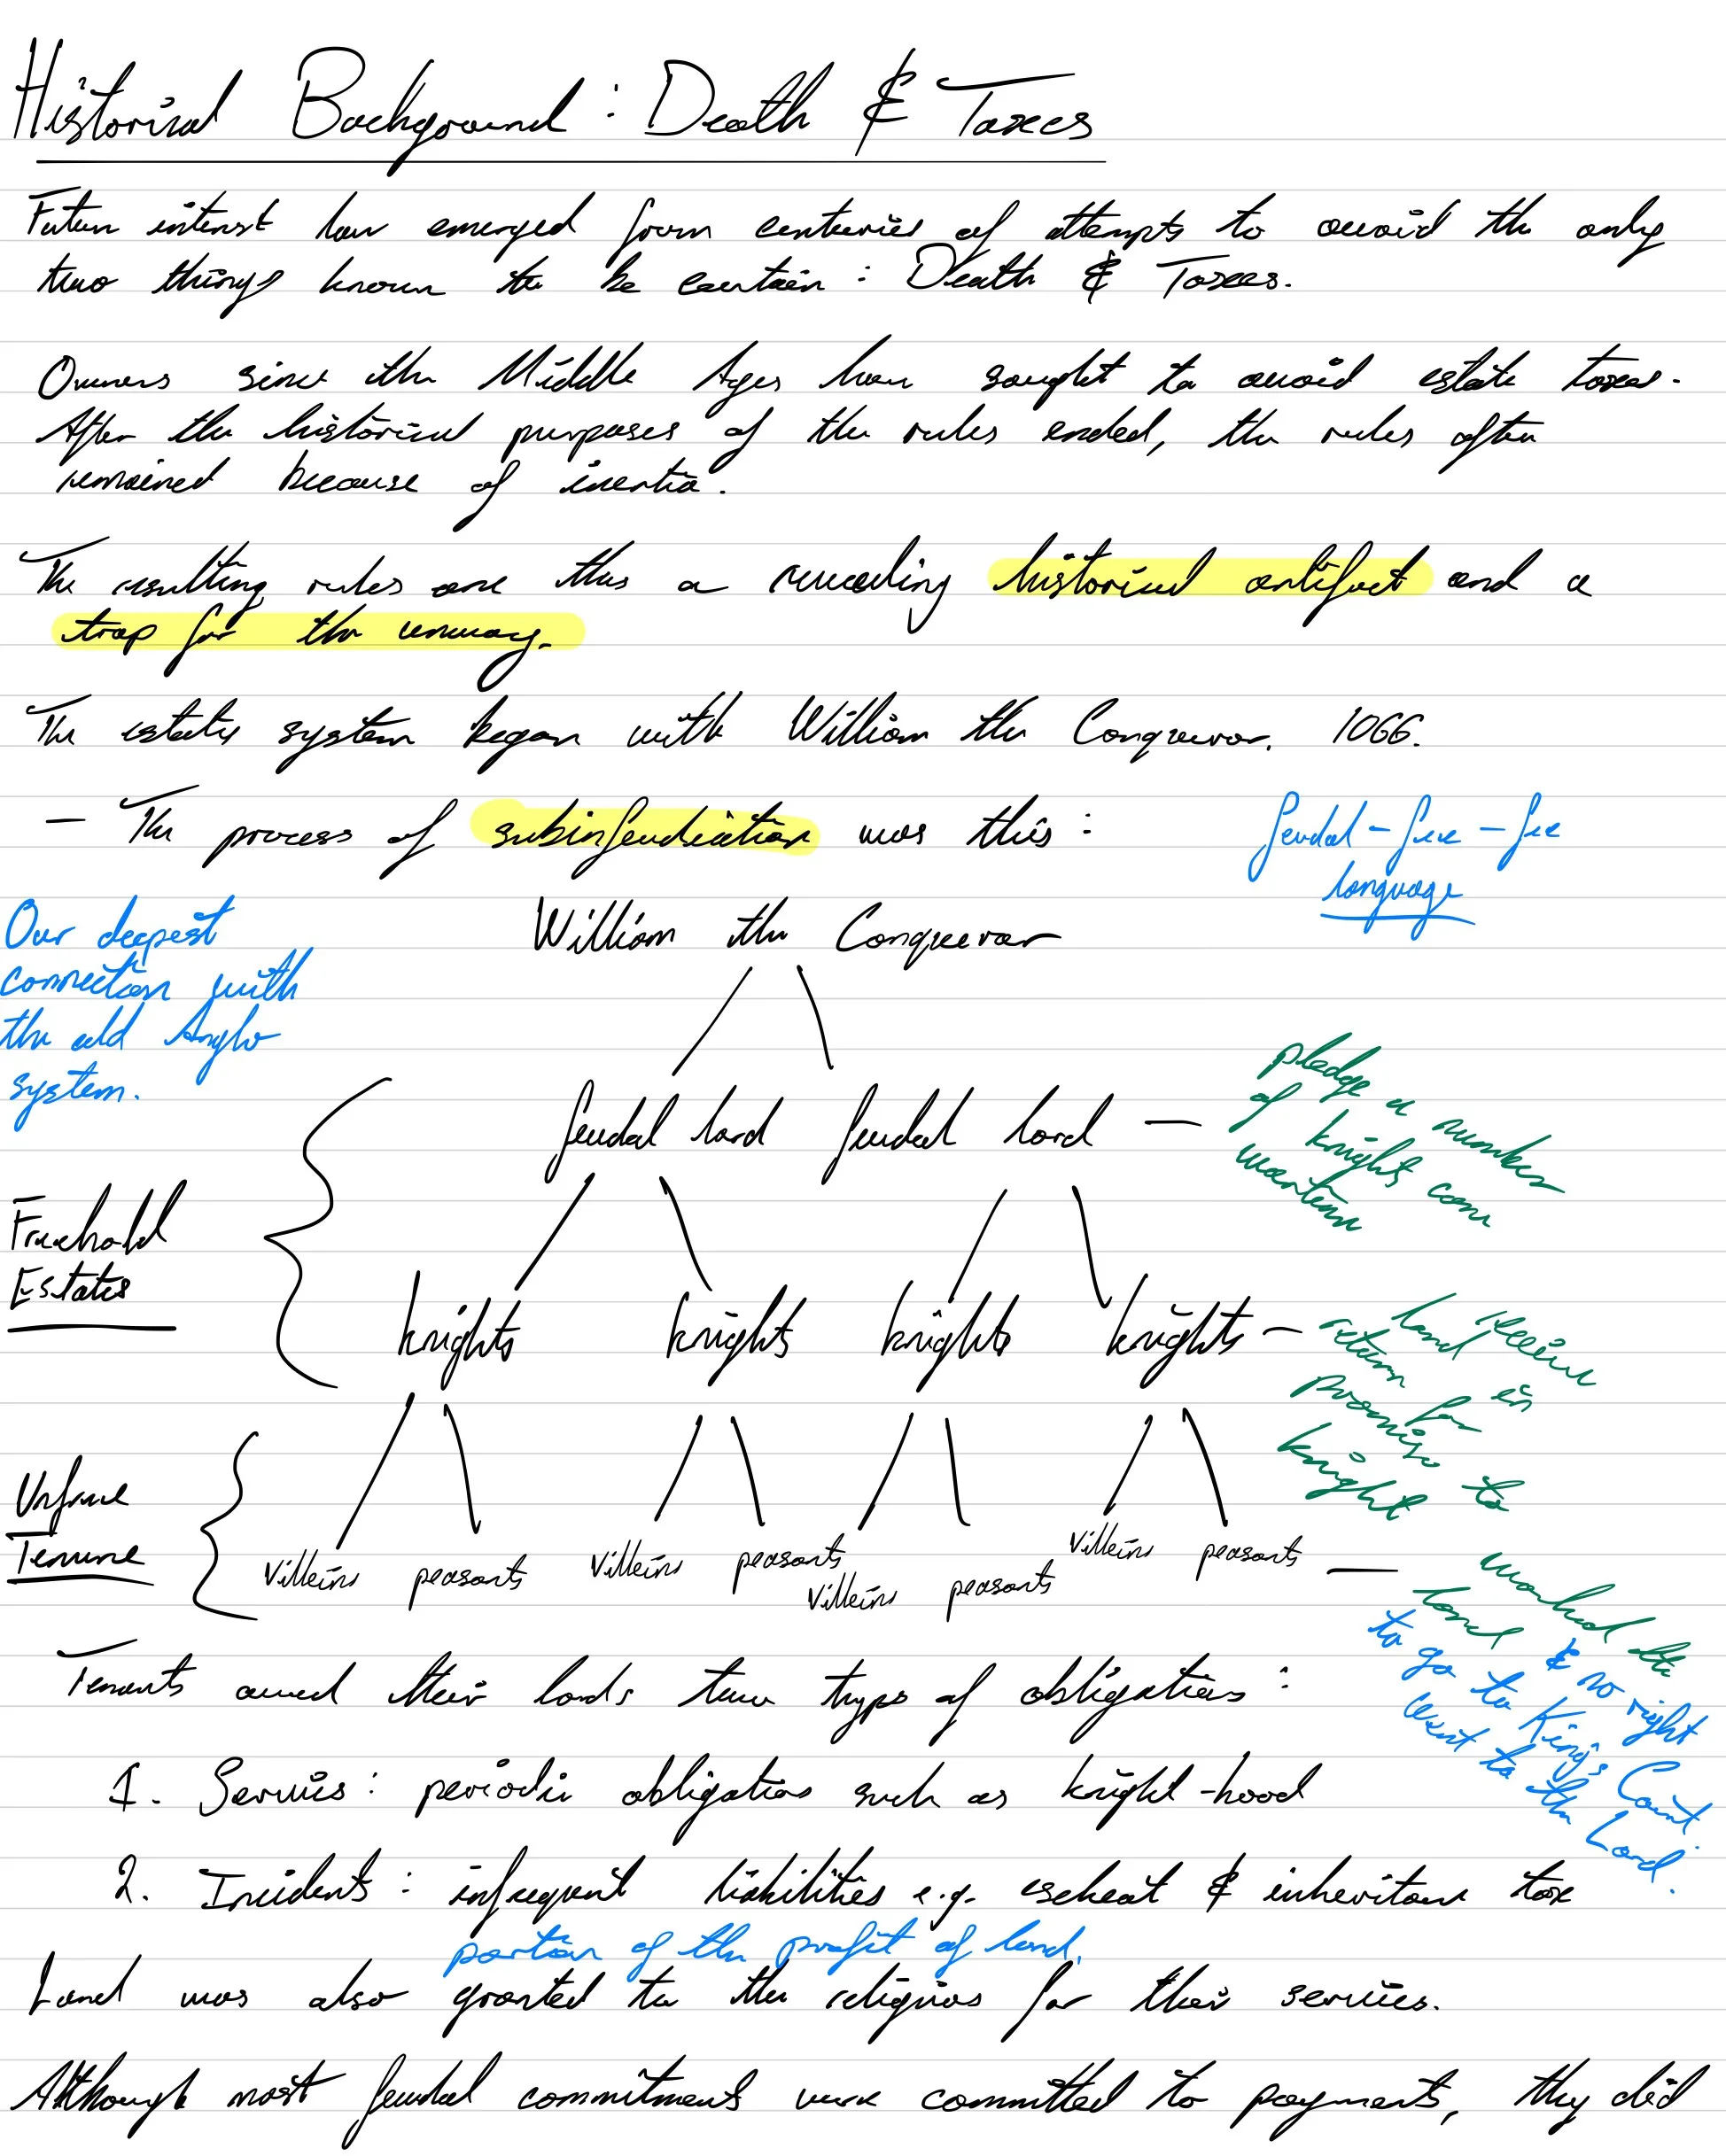 Historical Background : Death & Taxes
Future interest law emerged from centuries of attempts to avoid the only
two things known to be certain : Death & Taxes.
Owners since the Middle Ages have sought to avoid estate taxes.
After the historical purposes of the rules ended, the rules often
remained because of inertia.
The resulting rules are thus a revealing historical artifact and a
trap for the unwary.
The estates system began with William the Conqueror. 1066.
– The process of subinfeudication was this :
feudal – free – fee
language
Our deepest
connection with
the old Anglo
system.
William the Conqueror
feudal lord feudal lord —
pledge a number
of knights come
wartime
Freehold
Estates
knights knights knights knights –
receive
land in
return for
promise to
knight
Unfree
Tenure
Villeins peasants Villeins peasants Villeins peasants Villeins peasants —
worked the
land & no right
to go to King's Court.
went to the Lord.
Tenants owed their lords two types of obligations :
1. Services : periodic obligations such as knight-hood
2. Incidents : infrequent liabilities e.g. escheat & inheritance tax
portion of the profit of land.
Land was also granted to the religious for their services.
Although most feudal commitments were committed to payments, they did